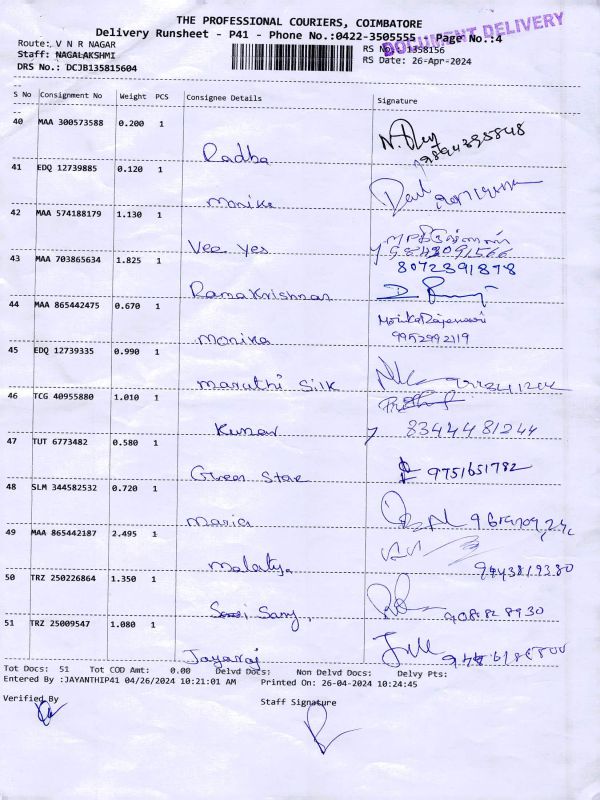 THE PROFESSIONAL COURIERS, COIMBATORE
Delivery Runsheet - P41 - Phone No.:0422-3505555 Page No.:4
DOCUMENT DELIVERY
Route: V N R NAGAR
Staff: NAGALAKSHMI
RS No.: 1358156
DRS No.: DCJB135815604
RS Date: 26-Apr-2024
S No Consignment No Weight PCS Consignee Details Signature
40 MAA 300573588 0.200 1
Radha
41 EDQ 12739885 0.120 1
Monika
42 MAA 574188179 1.130 1
Vee Yes
43 MAA 703865634 1.825 1
8072391878
Ramakrishnan
44 MAA 865442475 0.670 1
Monika
9952992119
45 EDQ 12739335 0.990 1
Maruthi Silk
46 TCG 40955880 1.010 1
Kumar 8344481244
47 TUT 6773482 0.580 1
Green Star 9751651782
48 SLM 344582532 0.720 1
Maria
49 MAA 865442187 2.495 1
50 TRZ 250226864 1.350 1
51 TRZ 25009547 1.080 1
Jayaraj
Tot Docs: 51 Tot COD Amt: 0.00 Delvd Docs: Non Delvd Docs: Delvy Pts:
Entered By :JAYANTHIP41 04/26/2024 10:21:01 AM Printed On: 26-04-2024 10:24:45
Verified By Staff Signature